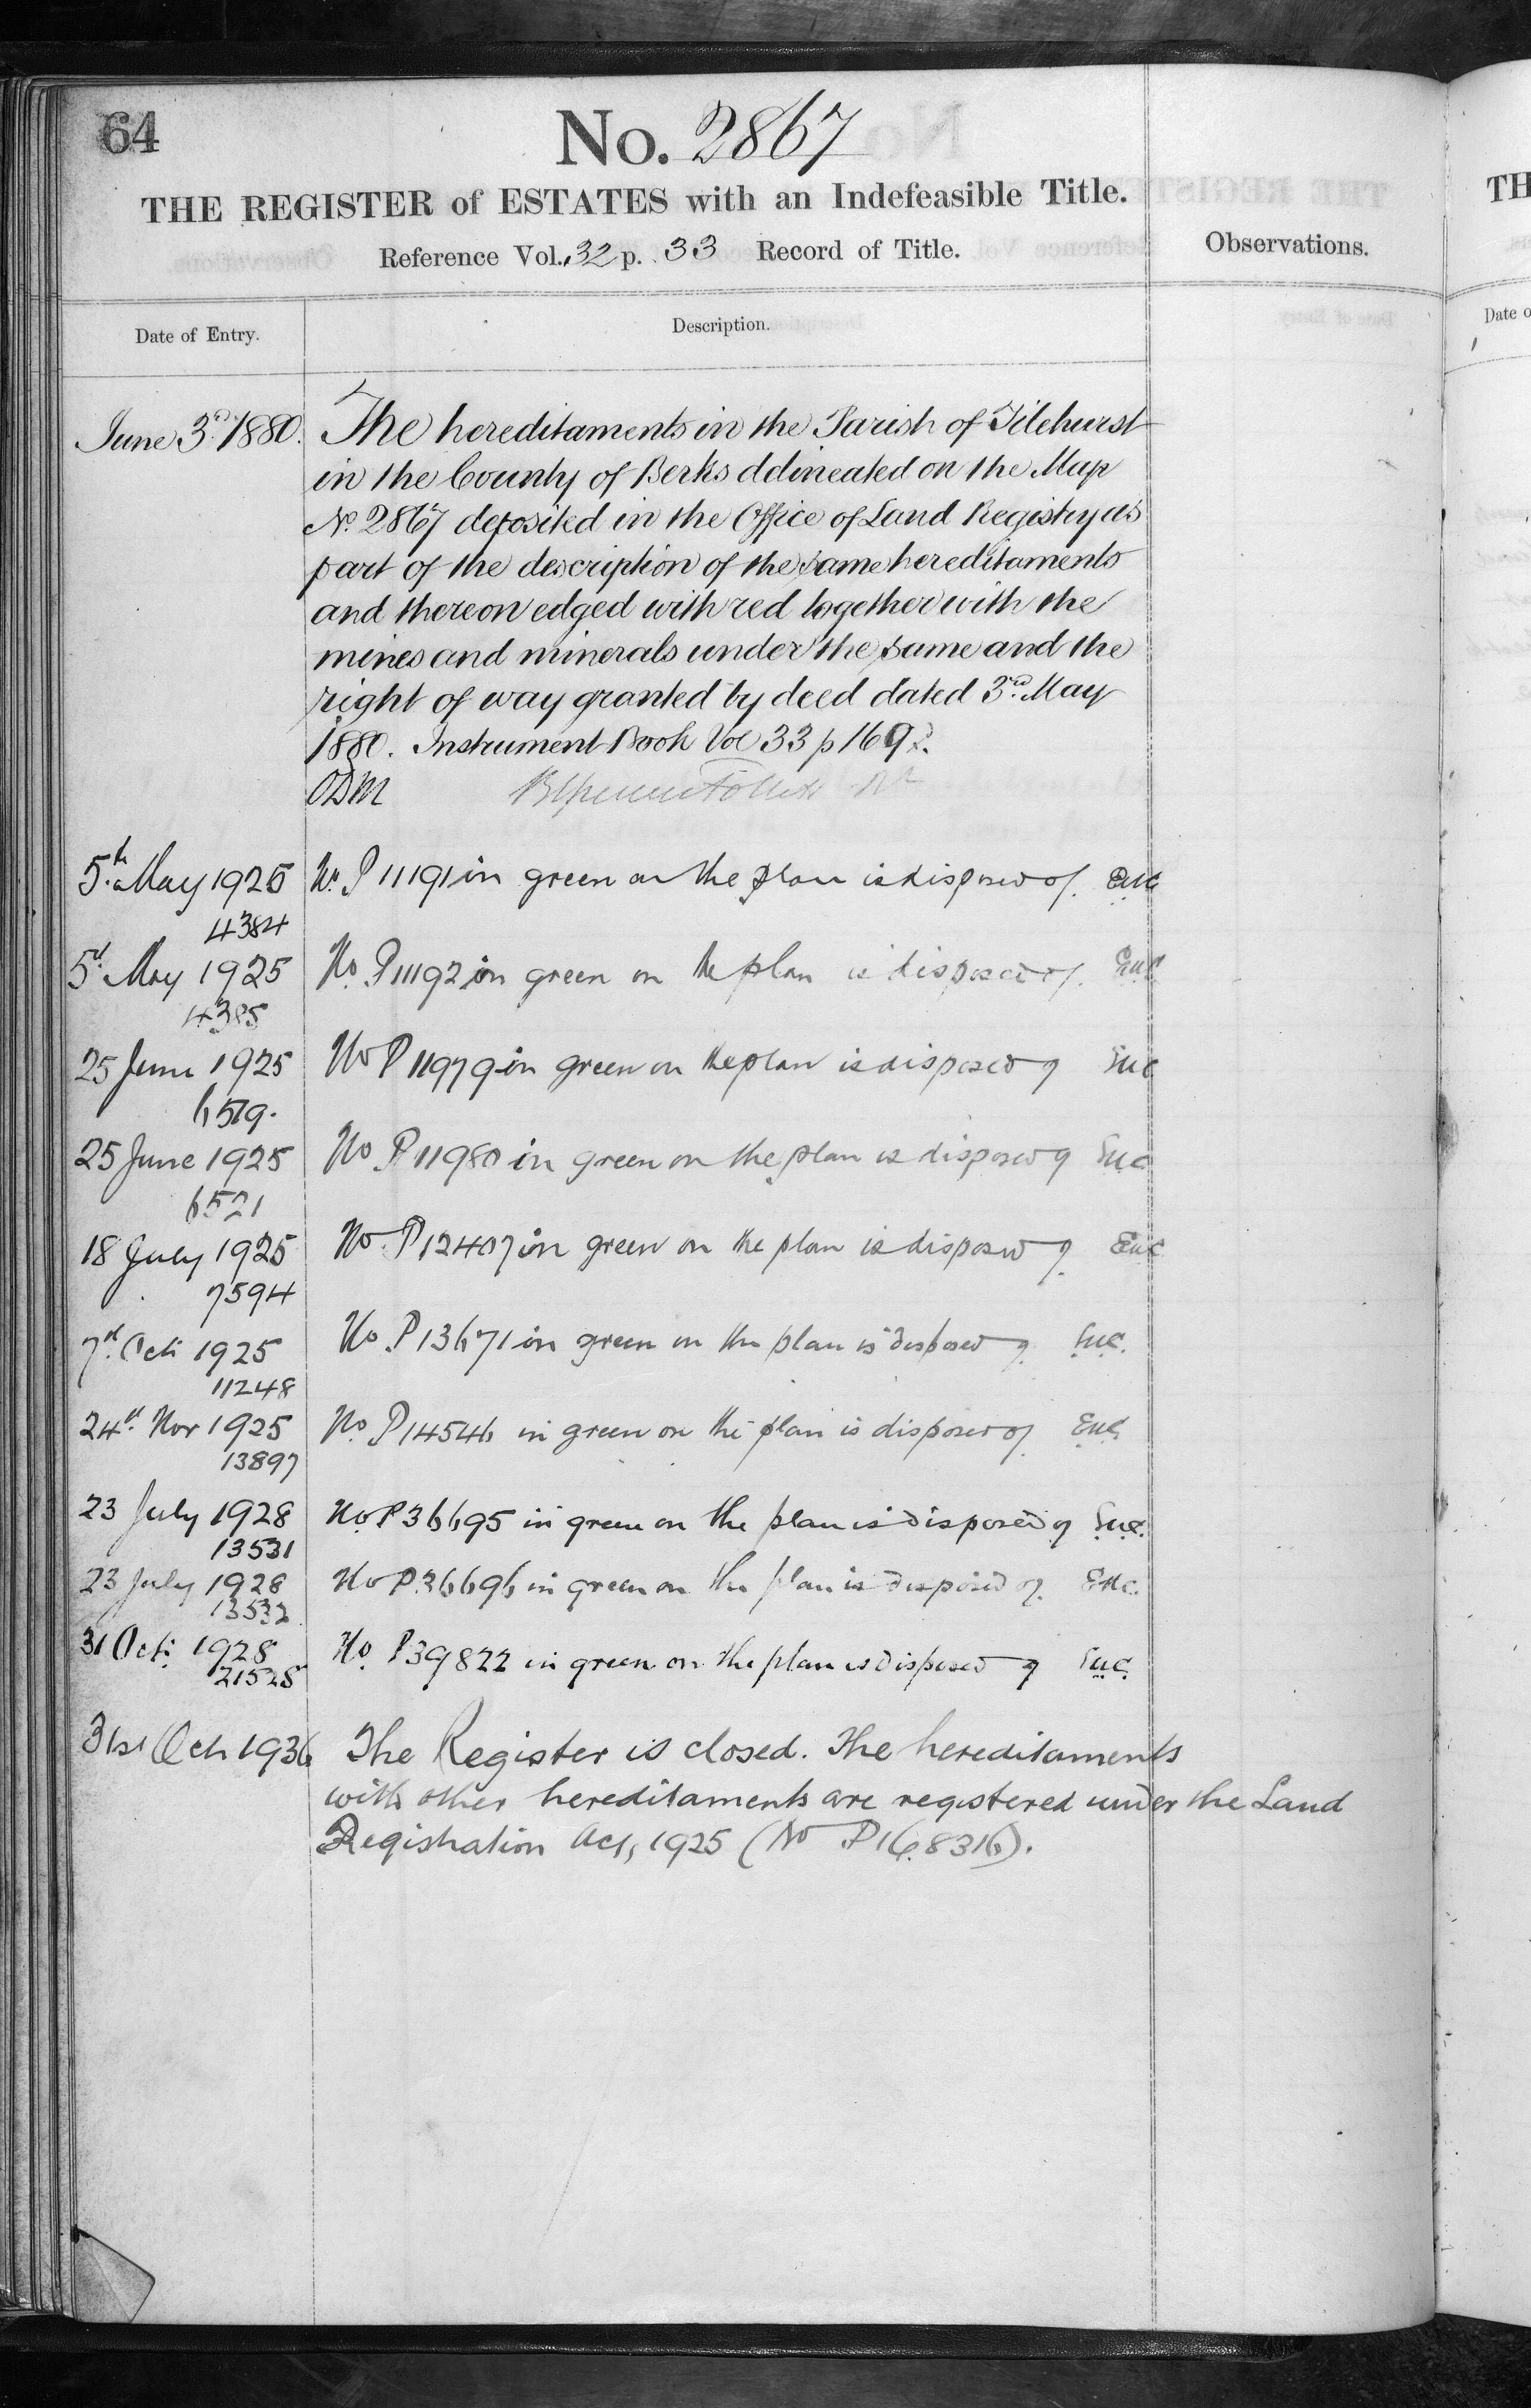 64
No. 2867
THE REGISTER of ESTATES with an Indefeasible Title.
Reference Vol. 32 p. 33 Record of Title.
Observations.
Date of Entry.
Description.
June 3rd 1880.
The hereditaments in the Parish of Tilehurst
in the County of Berks delineated on the Map
No. 2867 deposited in the Office of Land Registry as
part of the description of the same hereditaments
and thereon edged with red together with the
mines and minerals under the same and the
right of way granted by deed dated 3rd May
1880. Instrument Book Vol 33 p 169
ODM
5th May 1925 No. P 11191 in green on the plan is disposed of.
4384
5th May 1925 No. P 11192 in green on the plan is disposed of.
4385
25 June 1925 No P 11979 in green on the plan is disposed of
6519.
25 June 1925 No P 11980 in green on the plan is disposed of
6521
18 July 1925 No. P 12407 in green on the plan is disposed of.
7594
7th Oct 1925 No. P 13671 in green on the plan is disposed of.
11248
24th Nov 1925 No. P 14546 in green on the plan is disposed of
13897
23 July 1928 No P 36695 in green on the plan is disposed of
13531
23 July 1928 No P 36696 in green on the plan is disposed of.
13532
31 Oct. 1928 No. P 39822 in green on the plan is disposed of
21528
31st Oct 1936 The Register is closed. The hereditaments
with other hereditaments are registered under the Land
Registration Act, 1925 (No P 168316).
TH
Date o